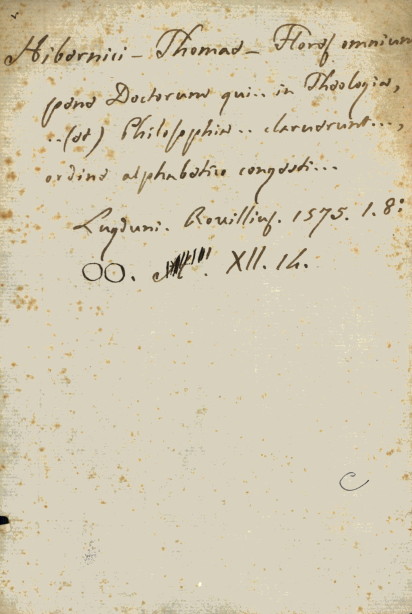 Hibernici - Thomae - Flores omnium
pene Doctorum qui.. in Theologia,
..(et) Philosophia.. claruerunt...,
ordine alphabetico congesti...
Lugduni. Rovillius. 1575. 1. 8º
OO. XII. 14.